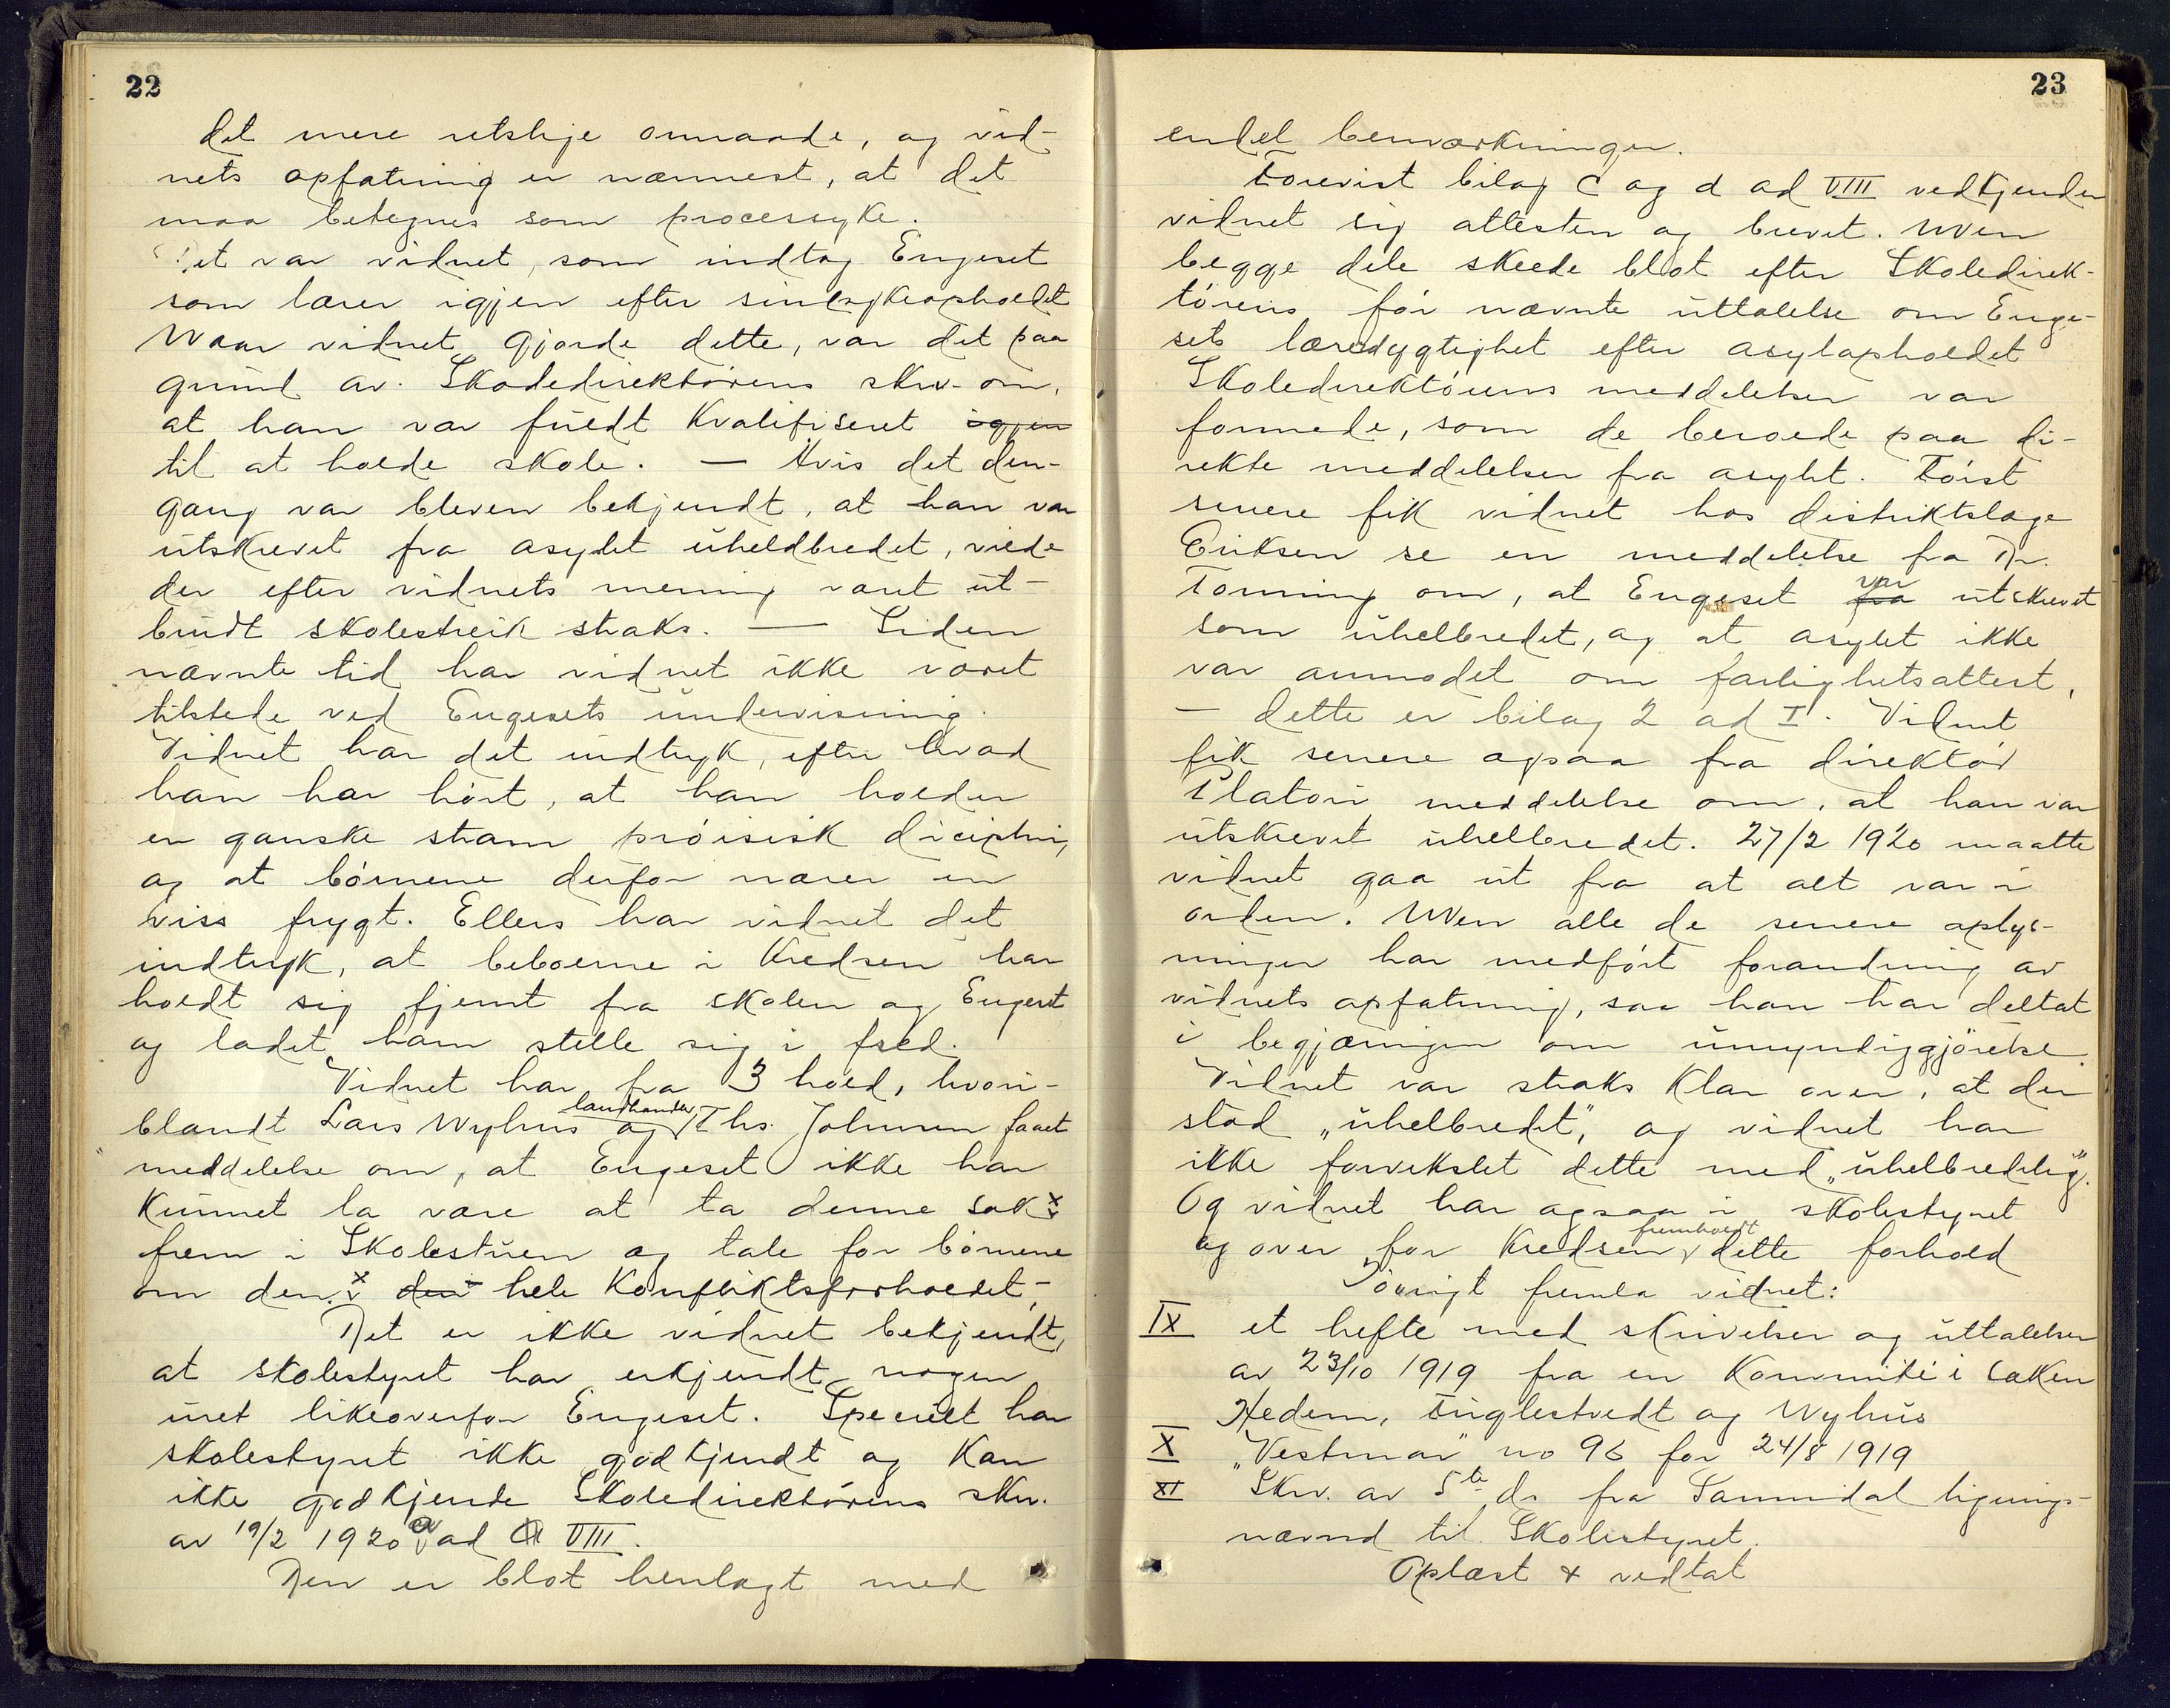 22
det mere retslige omraade, og vid-
nets opfatning er nærmest, at det
maa betegnes som processyke.
Det var vidnet, som indtog Engeset
som lærer igjen efter sindsykeopholdet
Naar vidnet gjorde dette, var det paa
grund av Skoledirektørens skr. om,
at han var fuldt kvalifiseret igjen
til at holde skole. — Hvis det den-
gang var bleven bekjendt, at han var
utskrevet fra asylet uheldbredet, vilde
der efter vidnets mening været ut-
brudt skolestreik straks. — Siden
nævnte tid har vidnet ikke været
tilstede ved Engesets undervisning.
Vidnet har det indtryk, efter hvad
han har hørt, at han holder
en ganske stram prøisisk diciplin,
og at børnene derfor nærer en
viss frygt. Ellers har vidnet det
indtryk, at beboerne i kredsen har
holdt sig fjernt fra skolen og Engeset
og ladet ham stelle sig i fred.
Vidnet har fra 3 hold, hvori-
landhandler
blandt Lars Nyhus og Ths. Johnsen faaet
meddelelse om, at Engeset ikke har
kunnet la være at ta denne sak x
frem i Skolestuen og tale for børnene
om den. x den hele konfliktsforholdet,-
Det er ikke vidnet bekjendt,
at skolestyret har erkjendt nogen
uret likeoverfor Engeset. Specielt har
skolestyret ikke godkjendt og kan
ikke godkjende Skoledirektørens skr.
av 19/2 1920 a ad VIII.
Den er blot henlagt med
23
endel bemærkninger.
Forevist bilag c og d ad VIII vedkjender
vidnet sig attesten og brevet. Men
begge dele skeede blot efter Skoledirek-
tørens før nævnte uttalelse om Enge-
sets læredygtighet efter asylopholdet
Skoledirektørens meddelelser var
formede, som de beroede paa di-
rekte meddelelser fra asylet. Først
senere fik vidnet hos distriktslæge
Eriksen se en meddelelse fra Dr.
Tonning om, at Engeset fra var utskrevet
som uhelbredet, og at asylet ikke
var anmodet om farlighetsattest,
— dette er bilag 2 ad I. Vidnet
fik senere ogsaa fra direktør
Platou meddelelse om, at han var
utskrevet uhelbredet. 27/2 1920 maatte
vidnet gaa ut fra at alt var i
orden. Men alle de senere oplys-
ninger har medført forandring av
vidnets opfatning, saa han har deltat
i begjæringen om umyndiggjørelse.
Vidnet var straks klar over, at der
stod „uhelbredet", og vidnet har
ikke forvekslet dette med „uhelbredelig".
Og vidnet har ogsaa i skolestyret
fremholdt
og over for kredsen dette forhold
Iøvrigt fremla vidnet:
IX et hefte med skrivelser og uttalelser
av 23/10 1919 fra en kommité i saken
Hedem, Fuglestvedt og Nyhus
X „Vestmar" no 96 for 24/8 1919
XI Skr. av 5te ds fra Sannidal lignings-
nævnd til Skolestyret.
Oplæst & vedtat